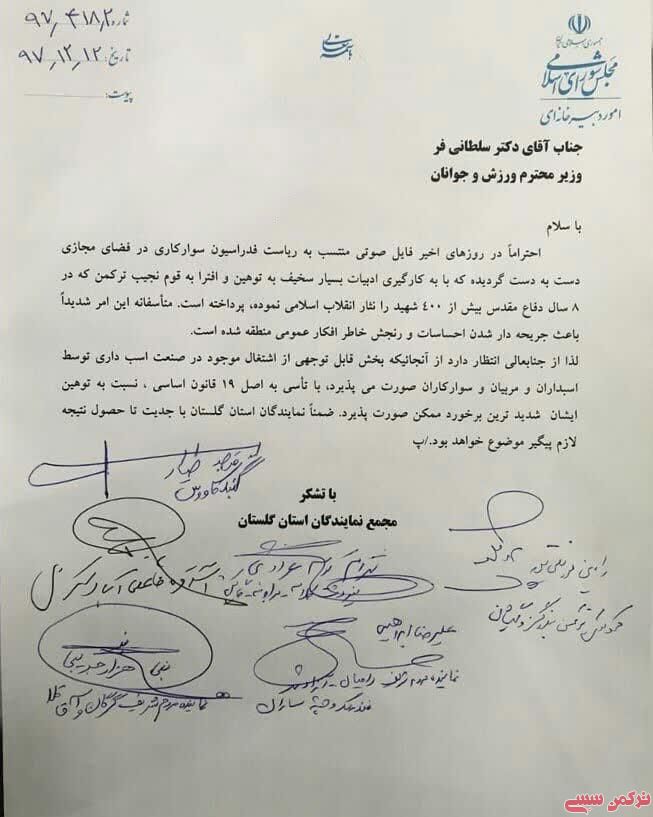 جمهوری اسلامی ایران
مجلس شورای اسلامی
امور دبیرخانه‌ای
باسمه تعالی
شماره: ۹۷٫۴۱۸٫۲
تاریخ: ۹۷٫۱۲٫۱۲
پیوست:
جناب آقای دکتر سلطانی فر
وزیر محترم ورزش و جوانان
با سلام
احتراماً در روزهای اخیر فایل صوتی منتسب به ریاست فدراسیون سوارکاری در فضای مجازی
دست به دست گردیده که با به کارگیری ادبیات بسیار سخیف به توهین و افترا به قوم نجیب ترکمن که در
۸ سال دفاع مقدس بیش از ۴۰۰ شهید را نثار انقلاب اسلامی نموده، پرداخته است. متأسفانه این امر شدیداً
باعث جریحه دار شدن احساسات و رنجش خاطر افکار عمومی منطقه شده است.
لذا از جنابعالی انتظار دارد از آنجائیکه بخش قابل توجهی از اشتغال موجود در صنعت اسب داری توسط
اسبداران و مربیان و سوارکاران صورت می پذیرد، با تأسی به اصل ۱۹ قانون اساسی ، نسبت به توهین
ایشان شدید ترین برخورد ممکن صورت پذیرد. ضمناً نمایندگان استان گلستان با جدیت تا حصول نتیجه
لازم پیگیر موضوع خواهد بود./پ
با تشکر
مجمع نمایندگان استان گلستان
گنبد کاووس
علیرضا ابراهیمی
نماینده مردم شریف رامیان
نبی هزارجریبی
نماینده مردم شریف گرگان و آق قلا
ترکمن سسی